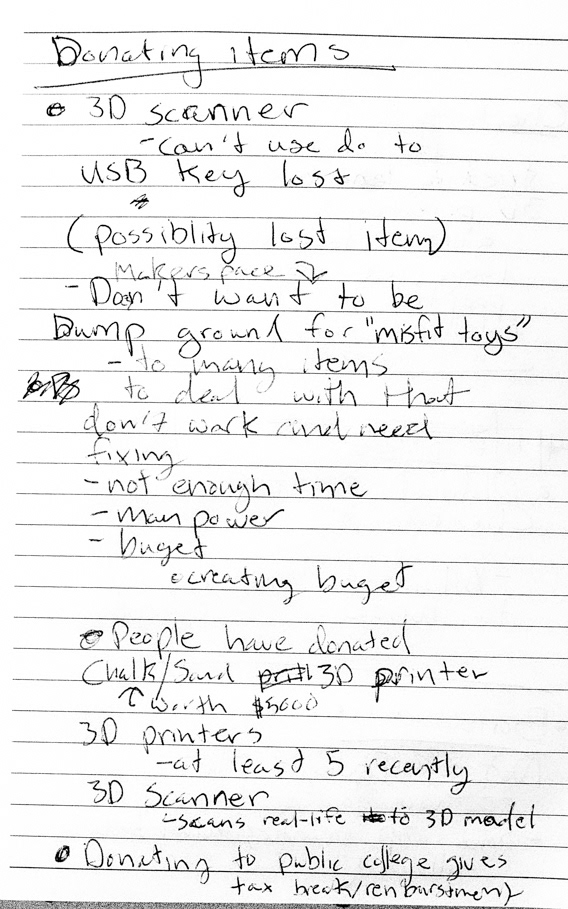 Donating items
• 3D scanner
- can't use do to
USB key lost
(possiblity lost item)
Makerspace
- Don't want to be
Dump ground for "misfit toys"
- to many items
to deal with that
don't work and need
fixing
- not enough time
- man power
- buget
• creating buget
• People have donated
Chalk/Sand 3D printer
↑ worth $5000
3D printers
- at least 5 recently
3D Scanner
- scans real-life to 3D model
• Donating to public college gives
tax break/renburstment